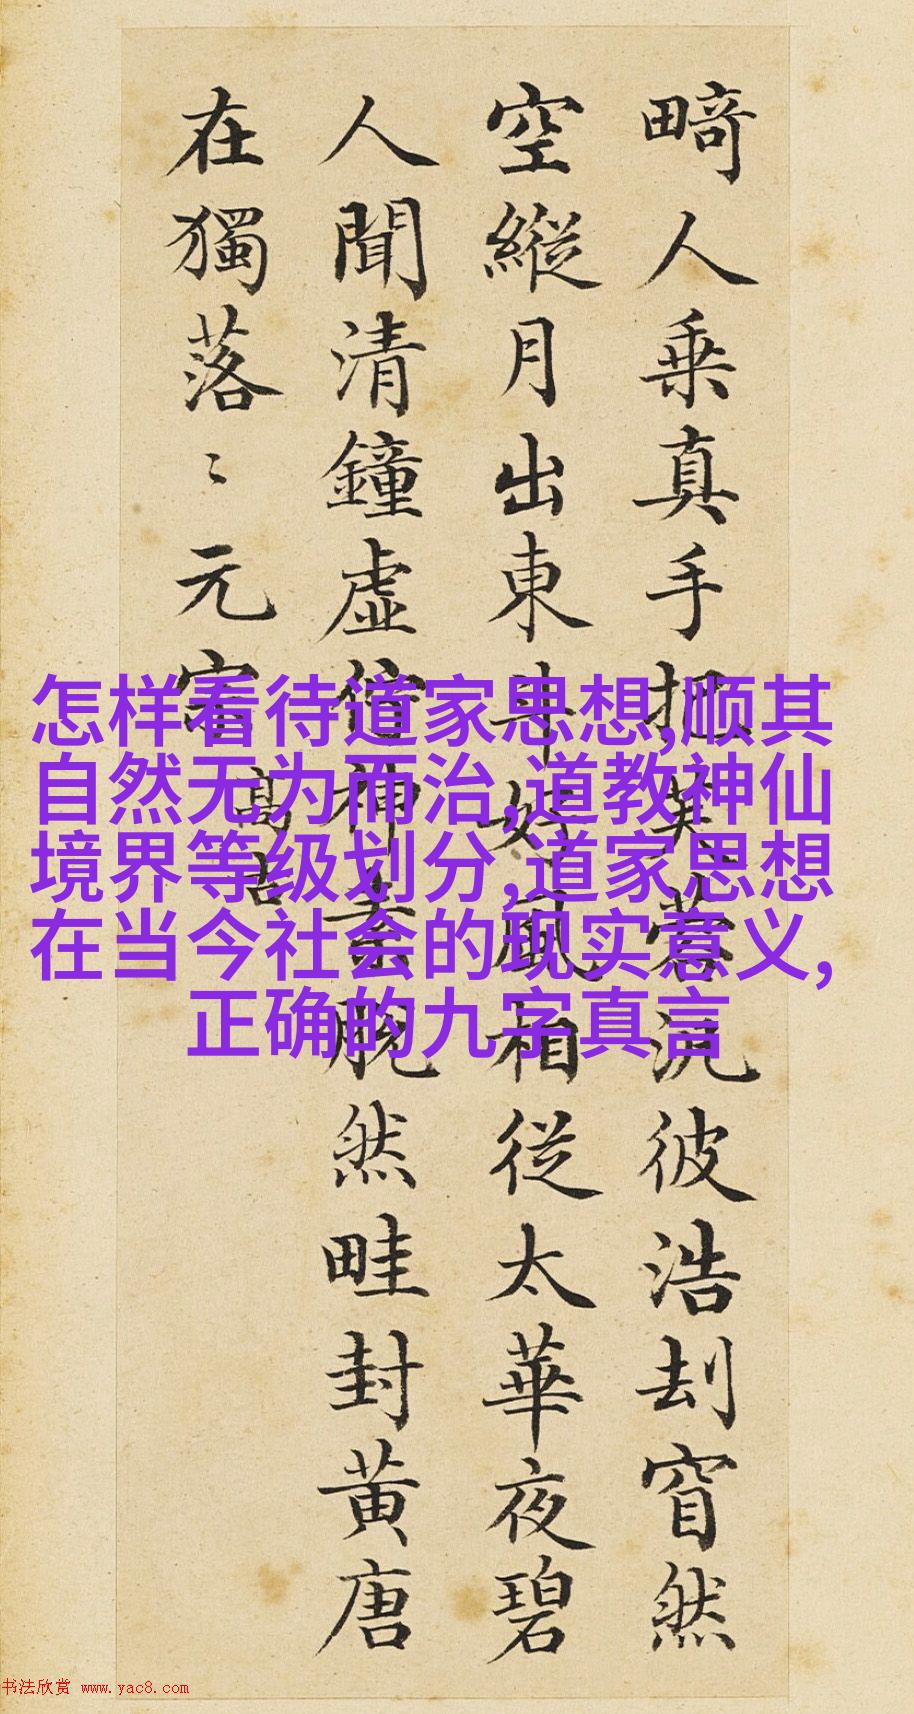 畸人乗真手把芙蓉汎彼浩刦窅然
空縱月出東斗好風相從太華夜碧
人聞清鐘虛佇神素脱然畦封黄唐
在獨落〻元宗
高古
怎样看待道家思想,顺其
自然无为而治,道教神仙
境界等级划分,道家思想
在当今社会的现实意义,
正确的九字真言
书法欣赏 www.yac8.com